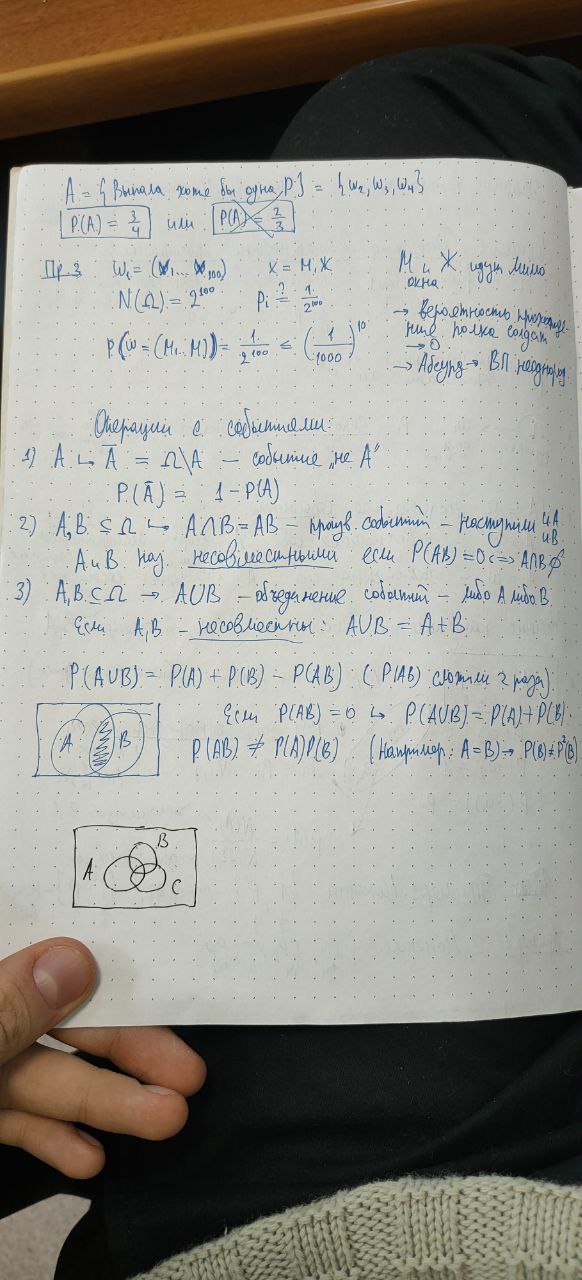 A = { Выпала хотя бы одна Р } = {ω₂, ω₃, ω₄}
P(A) = 3/4 или P(A) = 2/3
Пр. 3 ωᵢ = (x₁ ... x₁₀₀) x = М, Ж
N(Ω) = 2¹⁰⁰ Pᵢ ?= 1/2¹⁰⁰
P(ω = (М₁ ... М)) = 1/2¹⁰⁰ ≤ (1/1000)¹⁰
М и Ж идут мимо
окна
→ вероятность
полка солдат
→ 0
→ Абсурд → ВП неоднород.
Операции с событиями:
1) A ↳ Ā = Ω\A – событие „не A"
P(Ā) = 1 - P(A)
2) A, B ⊆ Ω ↳ A∩B = AB – произв. событий – наступили и A и B
A и B наз. несовместными если P(AB) = 0 <=> A∩B ∅
3) A, B ⊆ Ω → A∪B – объединение событий – либо A либо B
Если A, B – несовместны: A∪B = A + B
P(A∪B) = P(A) + P(B) - P(AB) (P(AB) сложили 2 раза)
Если P(AB) = 0 ↳ P(A∪B) = P(A) + P(B)
P(AB) ≠ P(A)P(B) (Например: A = B) → P(B) ≠ P²(B)
A B
B
A
C